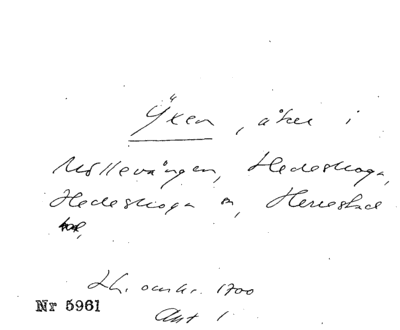 Yxen, åker i
Möllevången, Hedeskoga,
Hedeskoga sn, Herrestad
hd,
Lh. omkr. 1700
Akt 1
Nr 5961